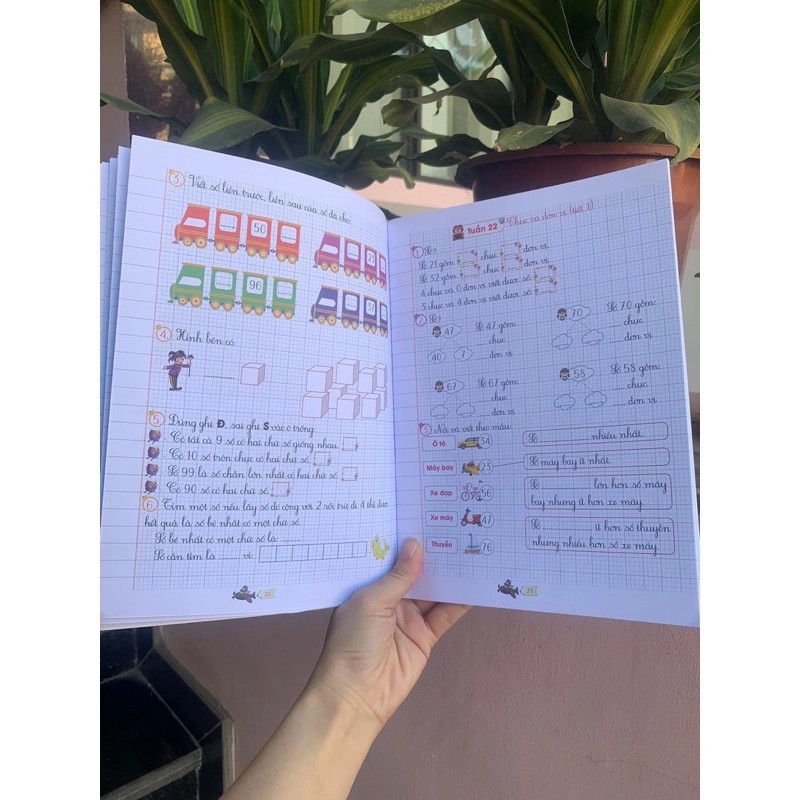 3 Viết số liền trước, liền sau của số đã cho:
50
23
96
57
4 Hình bên có:
5 Đúng ghi Đ, sai ghi S vào ô trống:
Có tất cả 9 số có hai chữ số giống nhau.
Có 10 số tròn chục có hai chữ số.
Số 99 là số chẵn lớn nhất có hai chữ số.
Có 90 số có hai chữ số.
6 Tìm một số nếu lấy số đó cộng với 2 rồi trừ đi 4 thì được
kết quả là số bé nhất có một chữ số.
Số bé nhất có một chữ số là:
Số cần tìm là ...... vì:
20
Tuần 22 Chục và đơn vị (tiết 1)
1 Số?
Số 21 gồm chục đơn vị.
Số 52 gồm chục đơn vị.
4 chục và 0 đơn vị viết được số:
5 chục và 4 đơn vị viết được số:
2 Số?
47 Số 47 gồm:
...... chục
40 7 ...... đơn vị
70 Số 70 gồm:
...... chục
...... đơn vị
67 Số 67 gồm:
...... chục
...... đơn vị
58 Số 58 gồm:
...... chục
...... đơn vị
3 Nối và viết theo mẫu:
Ô tô 54
Máy bay 25
Xe đạp 56
Xe máy 47
Thuyền 76
Số ............ nhiều nhất.
Số máy bay ít nhất.
Số ............ lớn hơn số máy
bay nhưng ít hơn xe máy.
Số ............ ít hơn số thuyền
nhưng nhiều hơn số xe máy.
21